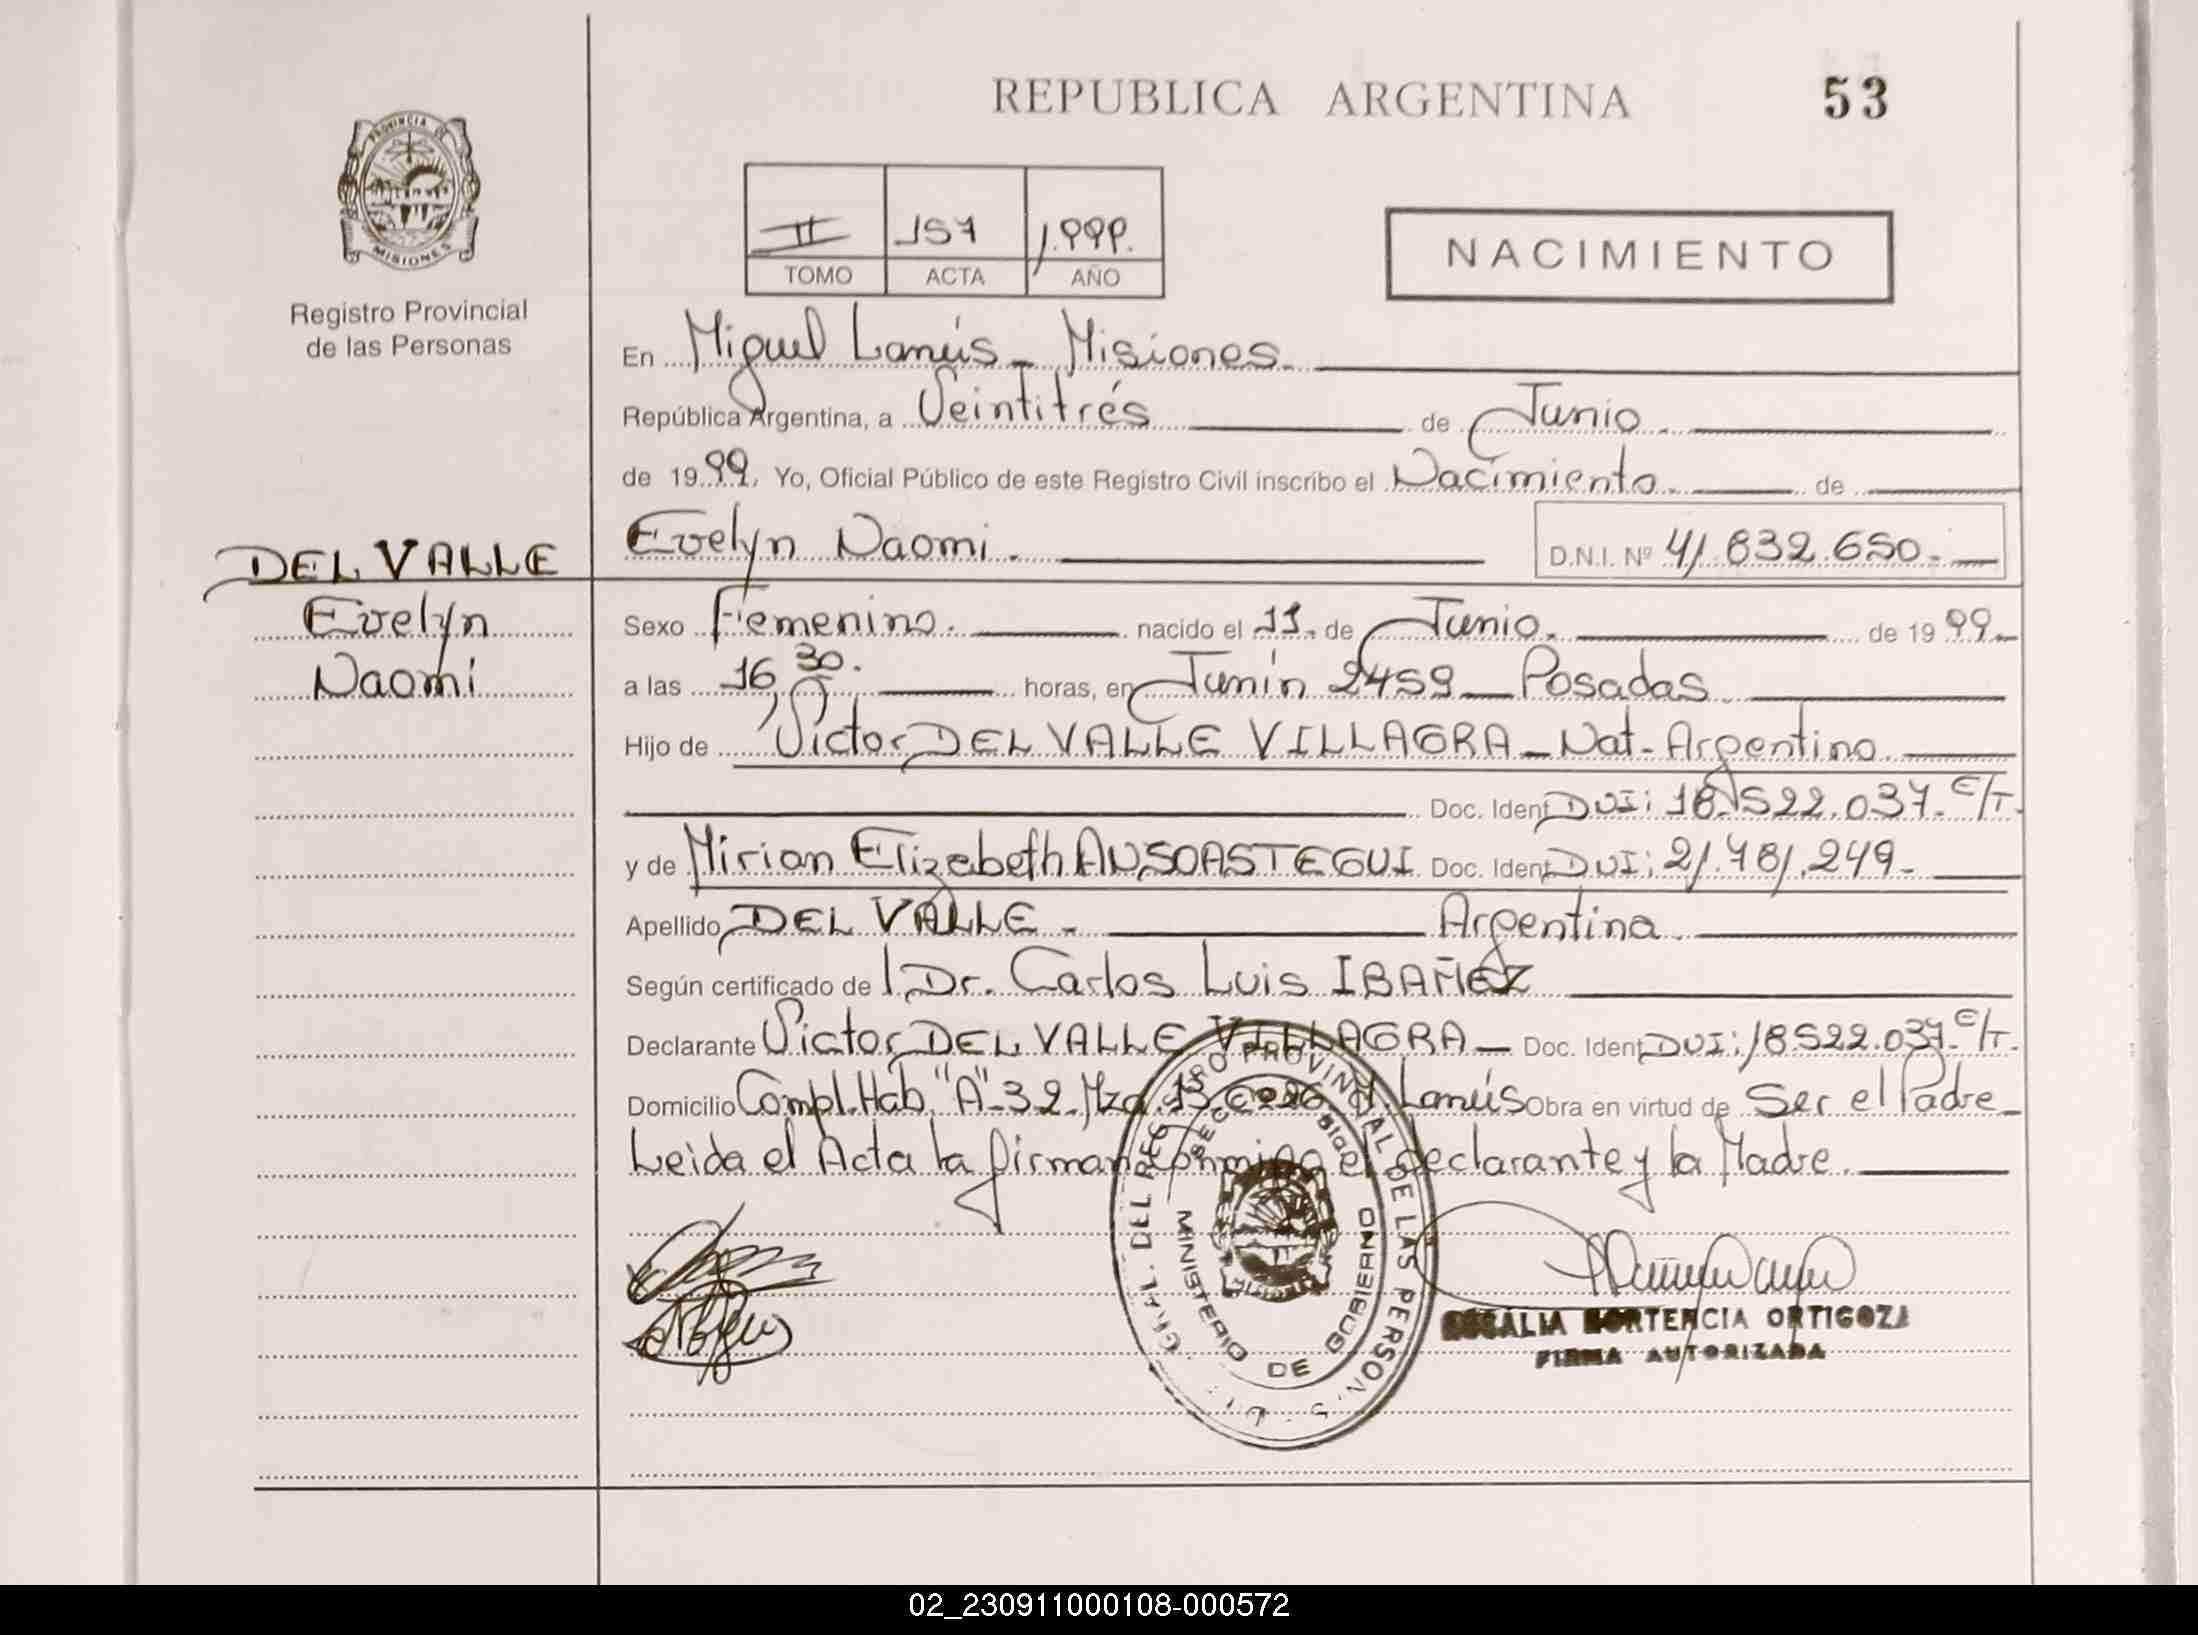 REPUBLICA ARGENTINA
53
PROVINCIA DE
MISIONES
Registro Provincial
de las Personas
II 157 1.999.
TOMO ACTA AÑO
NACIMIENTO
En Miguel Lanús - Misiones.
República Argentina, a Veintitrés de Junio.
de 1999. Yo, Oficial Público de este Registro Civil inscribo el Nacimiento. de
DEL VALLE
Evelyn
Naomi
Evelyn Naomi. D.N.I. Nº 41.832.650.
Sexo Femenino. nacido el 11. de Junio. de 1999.
a las 16,30. horas, en Junín 2459 - Posadas
Hijo de Victor DEL VALLE VILLAGRA - Nat. Argentino.
Doc. Ident. DUI: 18.522.037. E/T.
y de Mirian Elizabeth ANSOASTEGUI Doc. Ident. DUI: 21.781.249.
Apellido DEL VALLE - Argentina.
Según certificado de l Dr. Carlos Luis IBAÑEZ
Declarante Victor DEL VALLE VILLAGRA - Doc. Ident. DUI: 18.522.037. E/T.
Domicilio Compl. Hab. "A" 32. Mza. 13 Lanús Obra en virtud de Ser el Padre
Leida el Acta la firman conmigo el declarante y la Madre.
GRAL. DEL REGISTRO PROVINCIAL DE LAS PERSONAS
MINISTERIO DE GOBIERNO
ROSALIA HORTENCIA ORTIGOZA
FIRMA AUTORIZADA
02_230911000108-000572